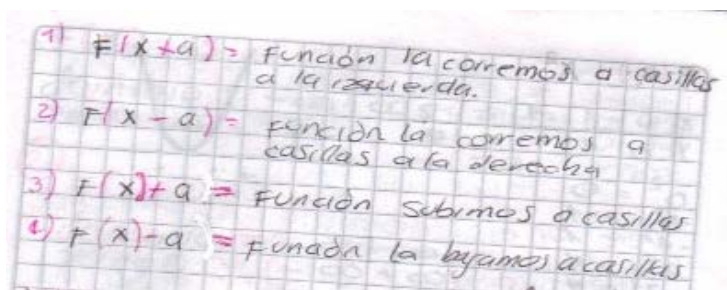 1) F(x+a) = Función la corremos a casillas
a la izquierda.
2) F(x-a) = Función la corremos a
casillas a la derecha
3) F(x)+a = Función subimos a casillas
4) F(x)-a = Función la bajamos a casillas